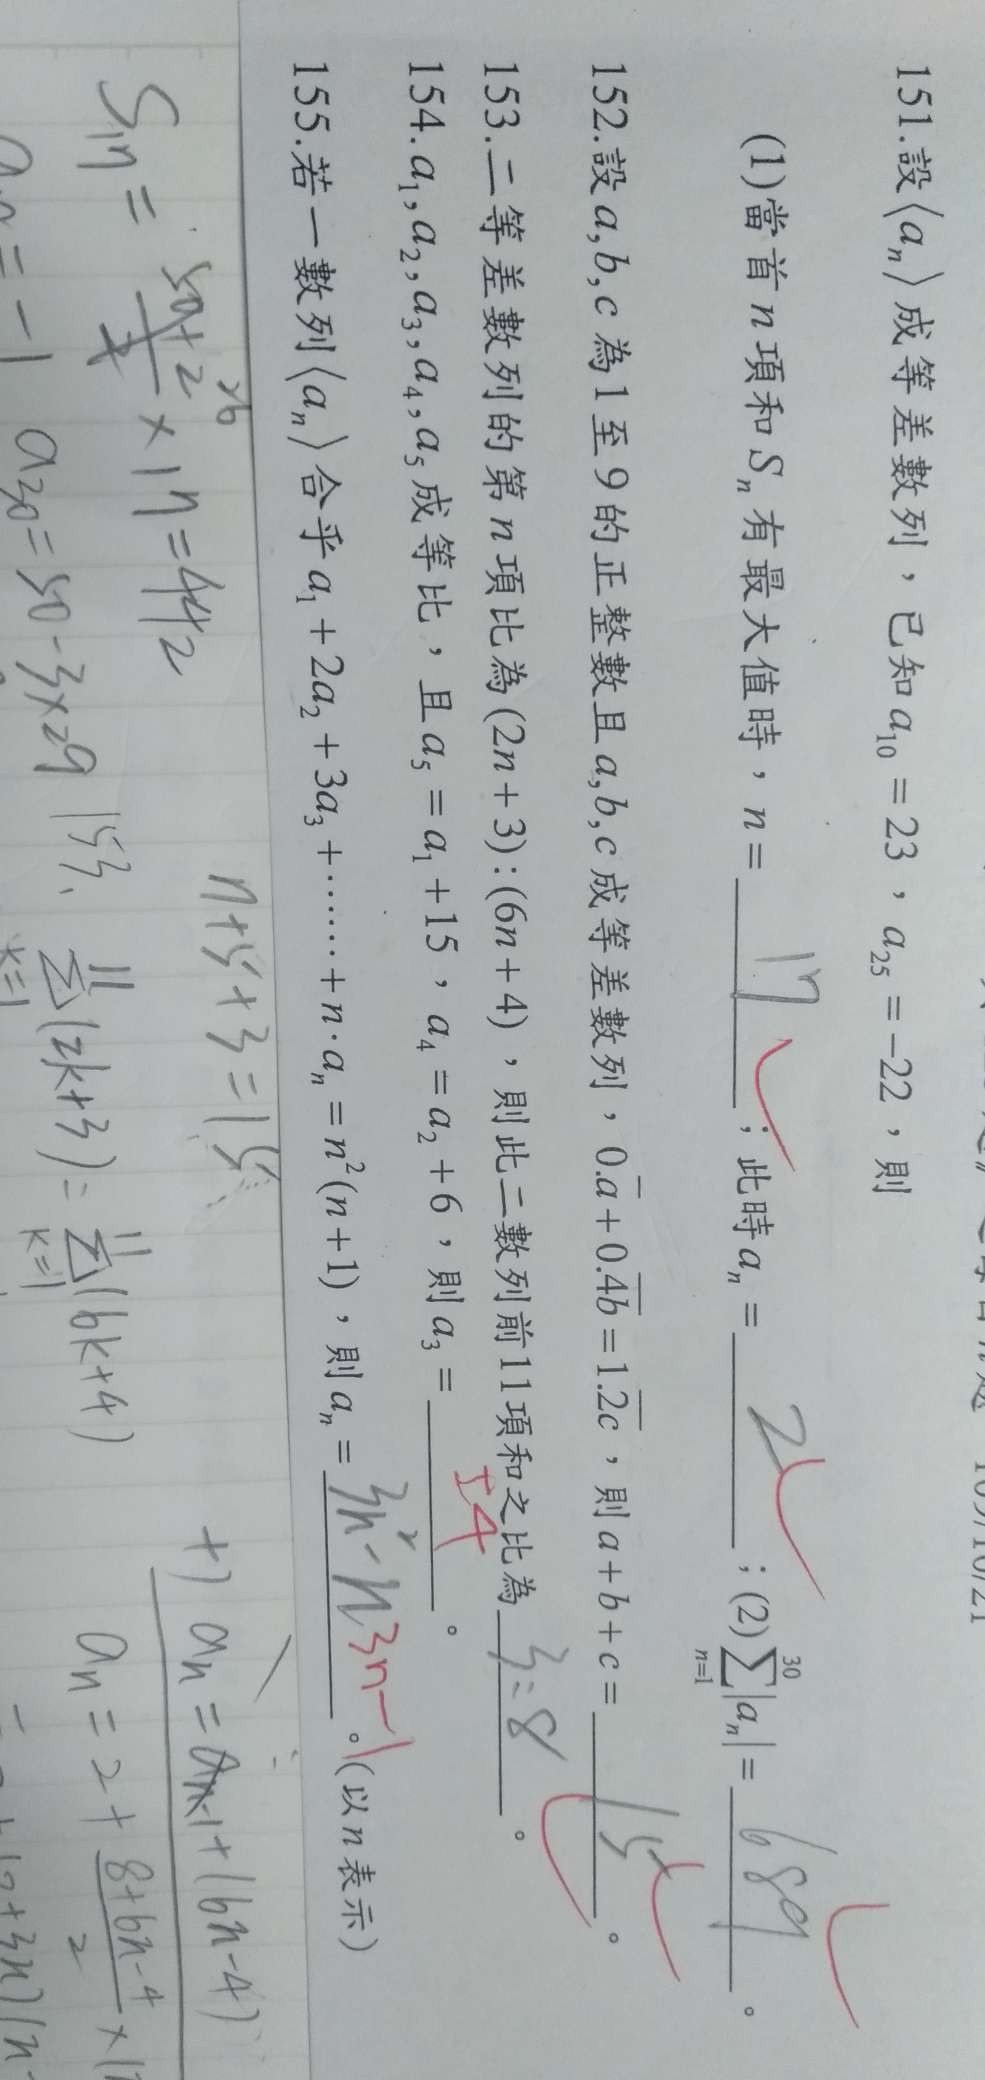 151.設⟨aₙ⟩成等差數列，已知a₁₀=23，a₂₅=−22，則
(1)當首n項和Sₙ有最大值時，n= 17 ；此時aₙ= 2 ；(2)∑ₙ₌₁³⁰|aₙ|= 689 。
152.設a,b,c為1至9的正整數且a,b,c成等差數列，0.a̅+0.4̅b̅=1.2̅c̅，則a+b+c= 15 。
153.二等差數列的第n項比為(2n+3):(6n+4)，則此二數列前11項和之比為 3:8 。
154.a₁,a₂,a₃,a₄,a₅成等比，且a₅=a₁+15，a₄=a₂+6，則a₃= ±4 。
155.若一數列⟨aₙ⟩合乎a₁+2a₂+3a₃+⋯⋯+n·aₙ=n²(n+1)，則aₙ= 3n²-n 3n-1 。(以n表示)
n+5+3=15
+) aₙ=aₙ₋₁+(6n-4)
S₁₇= 50+2 / 2 ×17=442
26
aₙ=2+ 8+6n-4 / 2
a₃₀=50-3×29
153. ∑ₖ₌₁¹¹(2k+3)=∑ₖ₌₁¹¹(6k+4)